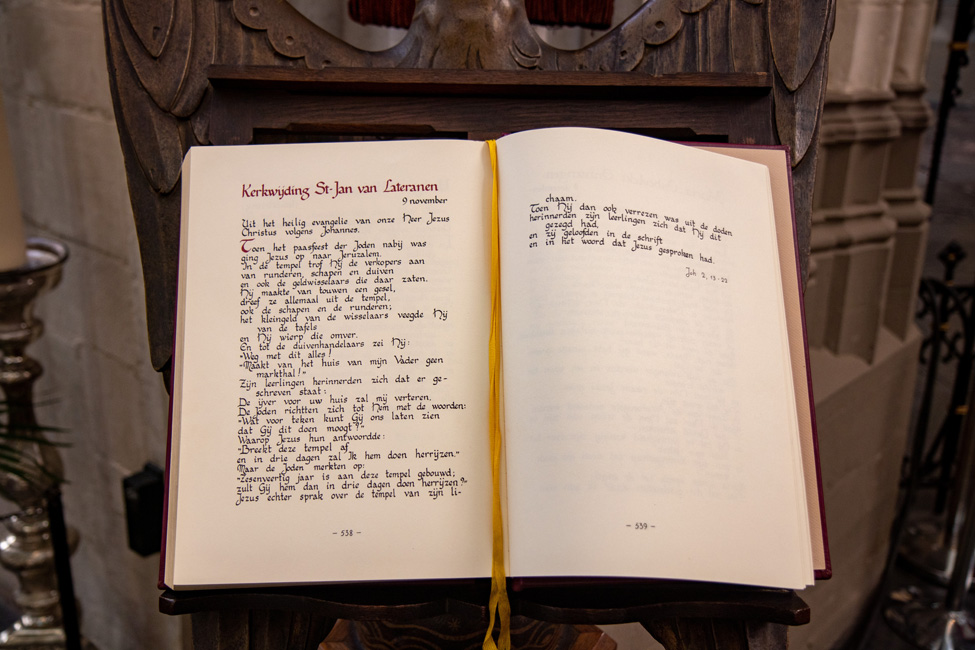 Kerkwijding St-Jan van Lateranen
9 november
Uit het heilig evangelie van onze Heer Jezus
Christus volgens Johannes.
Toen het paasfeest der Joden nabij was
ging Jezus op naar Jeruzalem.
In de tempel trof Hij de verkopers aan
van runderen, schapen en duiven
en ook de geldwisselaars die daar zaten.
Hij maakte van touwen een gesel,
dreef ze allemaal uit de tempel,
ook de schapen en de runderen;
het kleingeld van de wisselaars veegde Hij
van de tafels
en Hij wierp die omver.
En tot de duivenhandelaars zei Hij:
"Weg met dit alles!
"Maakt van het huis van mijn Vader geen
markthal!"
Zijn leerlingen herinnerden zich dat er ge-
schreven staat:
De ijver voor uw huis zal mij verteren.
De Joden richtten zich tot Hem met de woorden:
"Wat voor teken kunt Gij ons laten zien
dat Gij dit doen moogt?"
Waarop Jezus hun antwoordde:
"Breekt deze tempel af
en in drie dagen zal Ik hem doen herrijzen."
Maar de Joden merkten op:
"Zesenveertig jaar is aan deze tempel gebouwd;
zult Gij hem dan in drie dagen doen herrijzen?"
Jezus echter sprak over de tempel van zijn li-
- 538 -
chaam.
Toen Hij dan ook verrezen was uit de doden
herinnerden zijn leerlingen zich dat Hij dit
gezegd had,
en zij geloofden in de schrift
en in het woord dat Jezus gesproken had.
Joh 2, 13-22
- 539 -